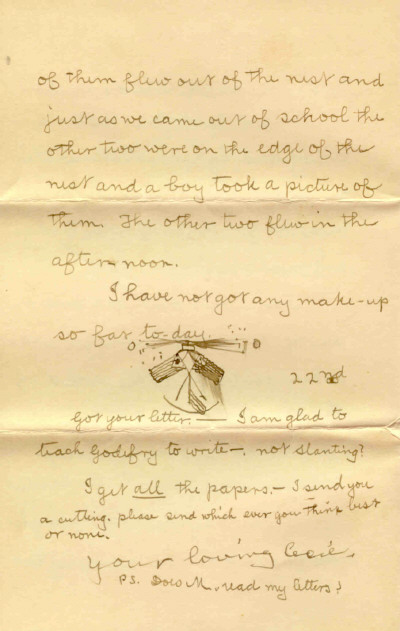 of them flew out of the nest and
just as we came out of school the
other two were on the edge of the
nest and a boy took a picture of
them. The other two flew in the
after-noon.
I have not got any make-up
so far to-day.
22nd
Got your letter. — I am glad to
teach Godefry to write —. not slanting?
I get all the papers. — I send you
a cutting. please send which ever you think best
or none.
Your loving Cecil.
P.S. Does M. read my letters?